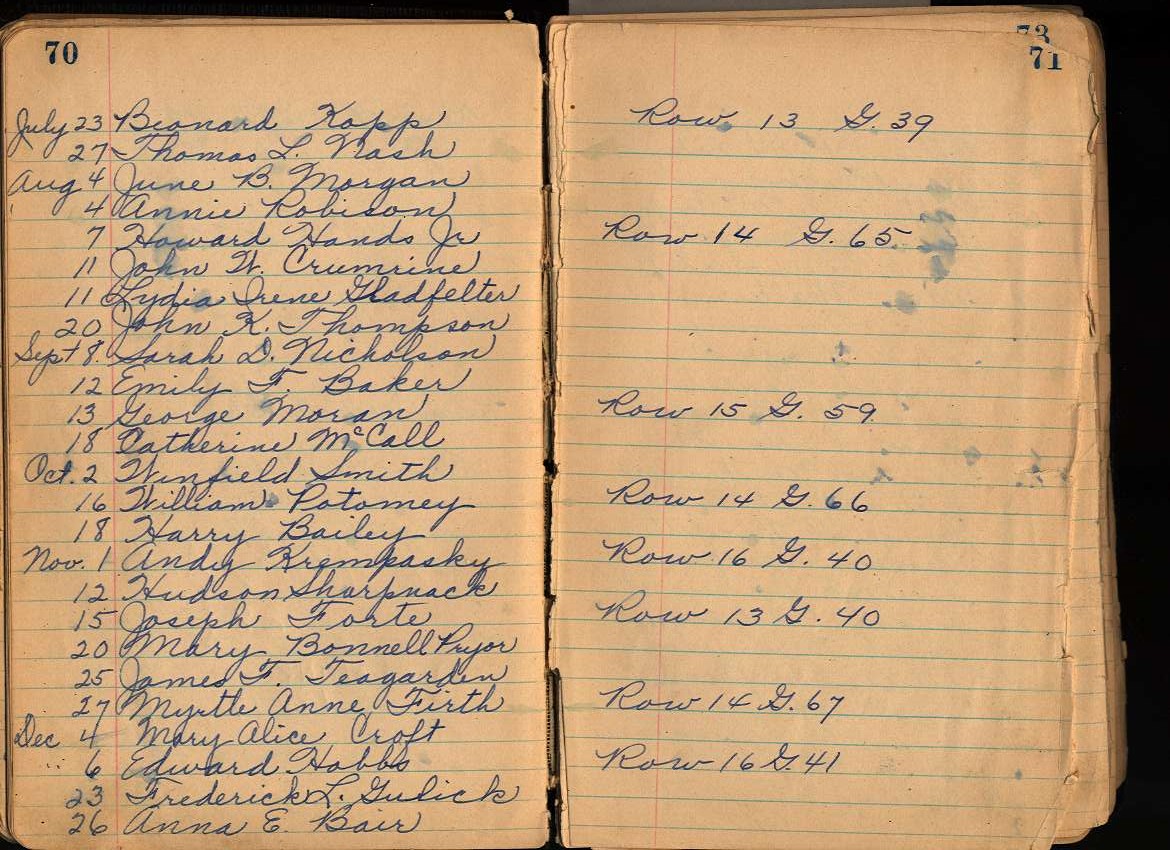 70
July 23 Beonard Kopp
27 Thomas L. Nash
Aug 4 June B. Morgan
4 Annie Robison
7 Howard Hands Jr
11 John W. Crumrine
11 Lydia Irene Gladfelter
20 John K. Thompson
Sept 8. Sarah D. Nicholson
12 Emily F. Baker
13 George Moran
18 Catherine McCall
Oct. 2 Winfield Smith
16 William Potomey
18 Harry Bailey
Nov. 1 Andy Krempasky
12 Hudson Sharpnack
15 Joseph Forte
20 Mary Bonnell Pryor
25 James F. Teagarden
27 Myrtle Anne Firth
Dec 4 Mary Alice Croft
" 6 Edward Hobbs
23 Frederick L. Gulick
26 Anna E. Bair
73
71
Row 13 G. 39
Row 14 G. 65
Row 15 G. 59
Row 14 G. 66
Row 16 G. 40
Row 13 G. 40
Row 14 G. 67
Row 16 G. 41